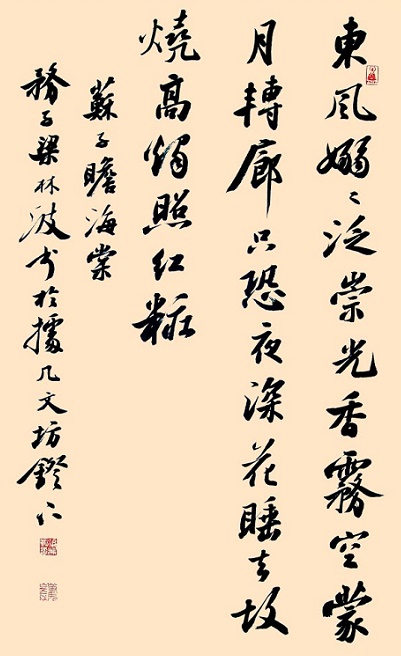 東風嫋〻泛崇光香霧空蒙
月轉廊只恐夜深花睡去故
燒高燭照紅粧
蘇子瞻海棠
務子梁林波書於據几文坊鐙下